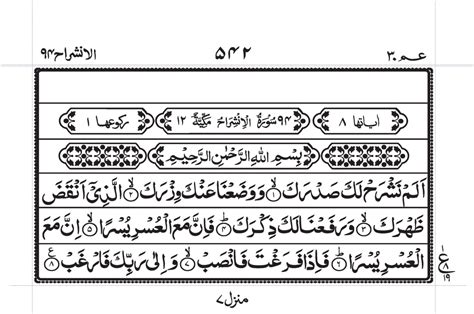 عم ۳۰ ۵۴۲ الانشراح ۹۴
اياتها ۸ ۹۴ سُوْرَةُ الْاِنْشِرَاحِ مَكِّيَّةٌ ۱۲ ركوعها ۱
بِسْمِ اللّٰهِ الرَّحْمٰنِ الرَّحِيْمِ
اَلَمْ نَشْرَحْ لَكَ صَدْرَكَ ۱ وَوَضَعْنَا عَنْكَ وِزْرَكَ ۲ الَّذِيْٓ اَنْقَضَ
ظَهْرَكَ ۳ وَرَفَعْنَا لَكَ ذِكْرَكَ ۴ فَاِنَّ مَعَ الْعُسْرِ يُسْرًا ۵ اِنَّ مَعَ
الْعُسْرِ يُسْرًا ۶ فَاِذَا فَرَغْتَ فَانْصَبْ ۷ وَاِلٰى رَبِّكَ فَارْغَبْ ۸
ع ۸ ۱۹
منزل ۷